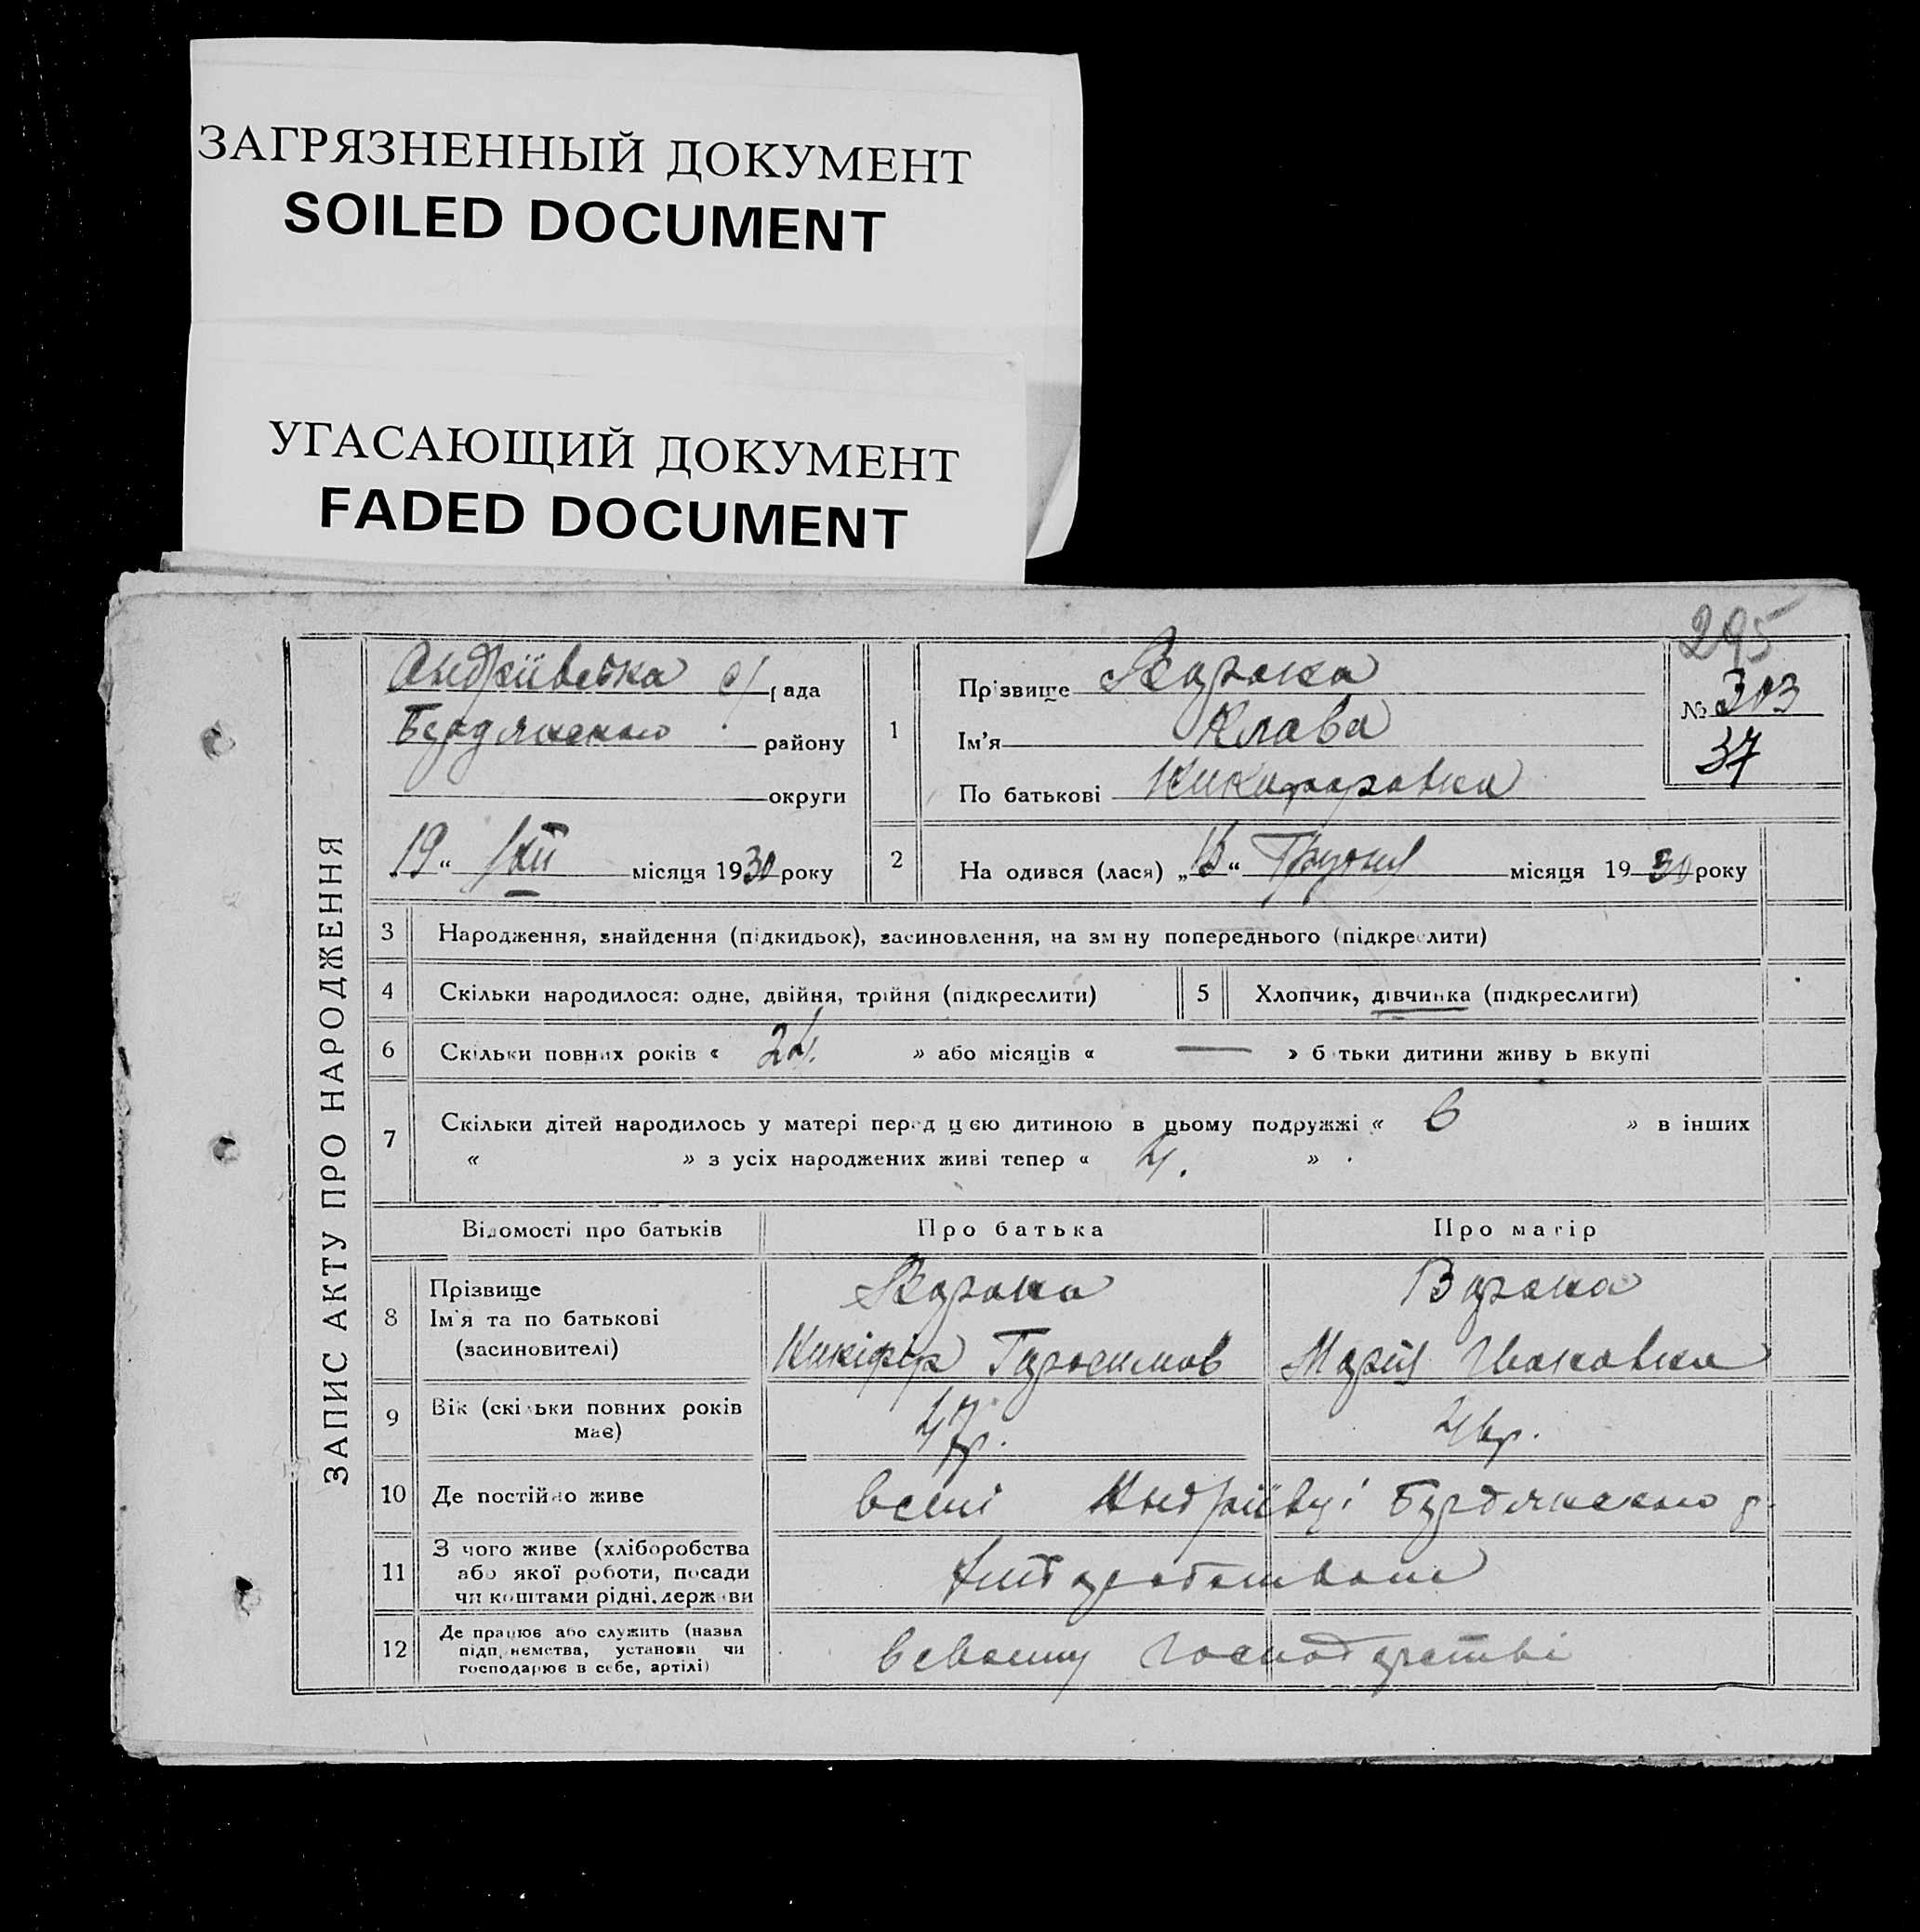 ЗАГРЯЗНЕННЫЙ ДОКУМЕНТ
SOILED DOCUMENT
УГАСАЮЩИЙ ДОКУМЕНТ
FADED DOCUMENT
295
ЗАПИС АКТУ ПРО НАРОДЖЕННЯ
Андріївська с/рада
Бердянського району
округи
19 " XII місяця 1930 року
1
Прізвище
Ім'я Клава
По батькові Никифоровна
№ 303
37
2 На одився (лася) „ " Грудня місяця 1930 року
3 Народження, знайдення (підкидьок), засиновлення, на зм ну попереднього (підкреслити)
4 Скільки народилося: одне, двійня, трійня (підкреслити)
5 Хлопчик, дівчинка (підкреслити)
6 Скільки повних років « 24. » або місяців « — » б тьки дитини живу ь вкупі
7 Скільки дітей народилось у матері перед цією дитиною в цьому подружжі « 6 » в інших
« » з усіх народжених живі тепер « 4. » .
Відомості про батьків Про батька Про матір
8 Прізвище
Ім'я та по батькові
(засиновителі)
Никіфір Гарасимов
Марія
9 Вік (скільки повних років
має)
47 р.
10 Де постійно живе
в селі Андріївці Бердянського р.
11 З чого живе (хліборобства
або якої роботи, посади
чи коштами рідні, держави
Хліборобством
12 Де працює або служить (назва
підп. нємства, установи чи
господарює в себе, артілі)
в своєму господарстві